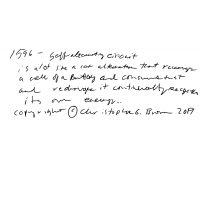 1596 - self electricity circuit
it's a lot like a car alternator that recharge
a cell of a battery and consumes it
and recharge it continually
its own energy..
copyright © Christopher G. Brown 2019